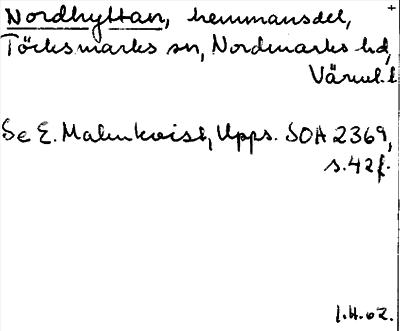 Nordhyttan, hemmansdel,
Töcksmarks sn, Nordmarks hd,
Värml. l
Se E. Malmkvist, Upps. SOA 2369,
s. 42 f.
I.H. 62.